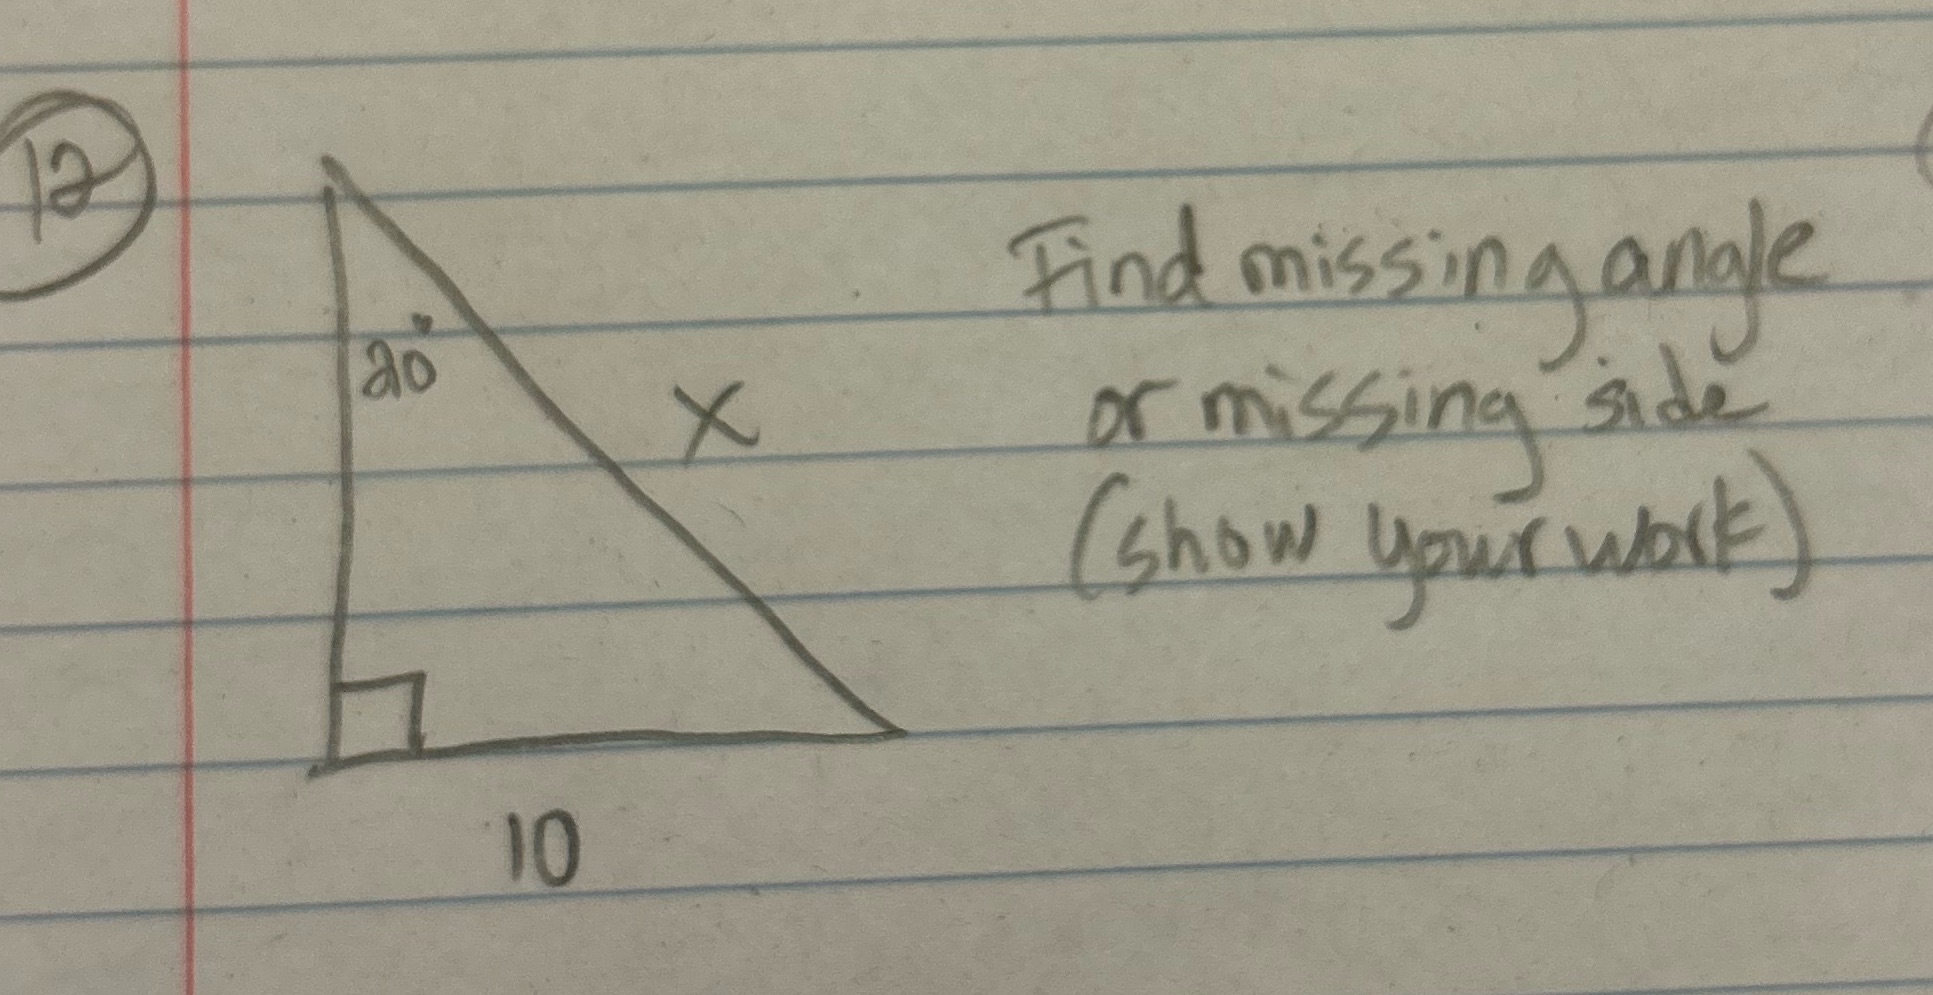 12
20°
x
10
Find missing angle
or missing side
(show your work)